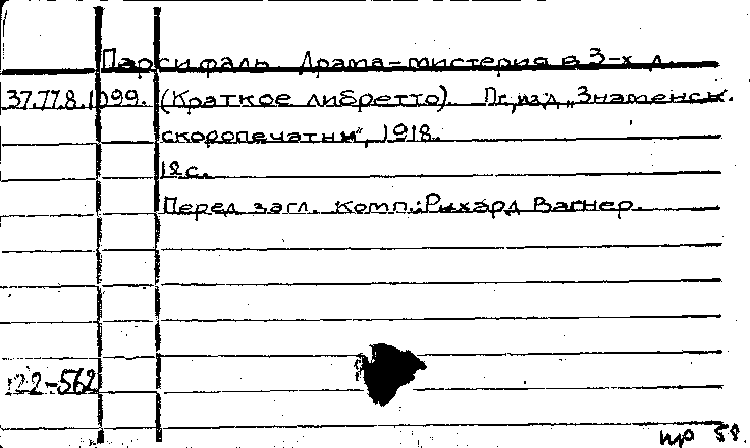 Парсифаль. Драма-мистерия в 3-х д.
37.77.8.1099. (Краткое либретто). Пг, изд „Знаменск.
скоропечатня", 1918.
12 с.
Перед загл. комп.: Рихард Вагнер.
122-562
пр 58